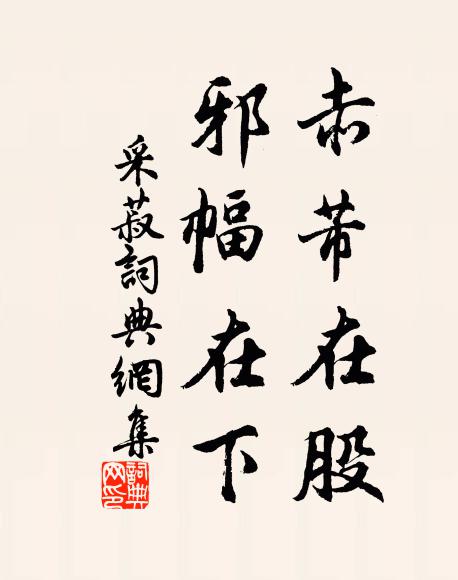 赤芾在股
邪幅在下
采菽詞典網集
詞典
网印